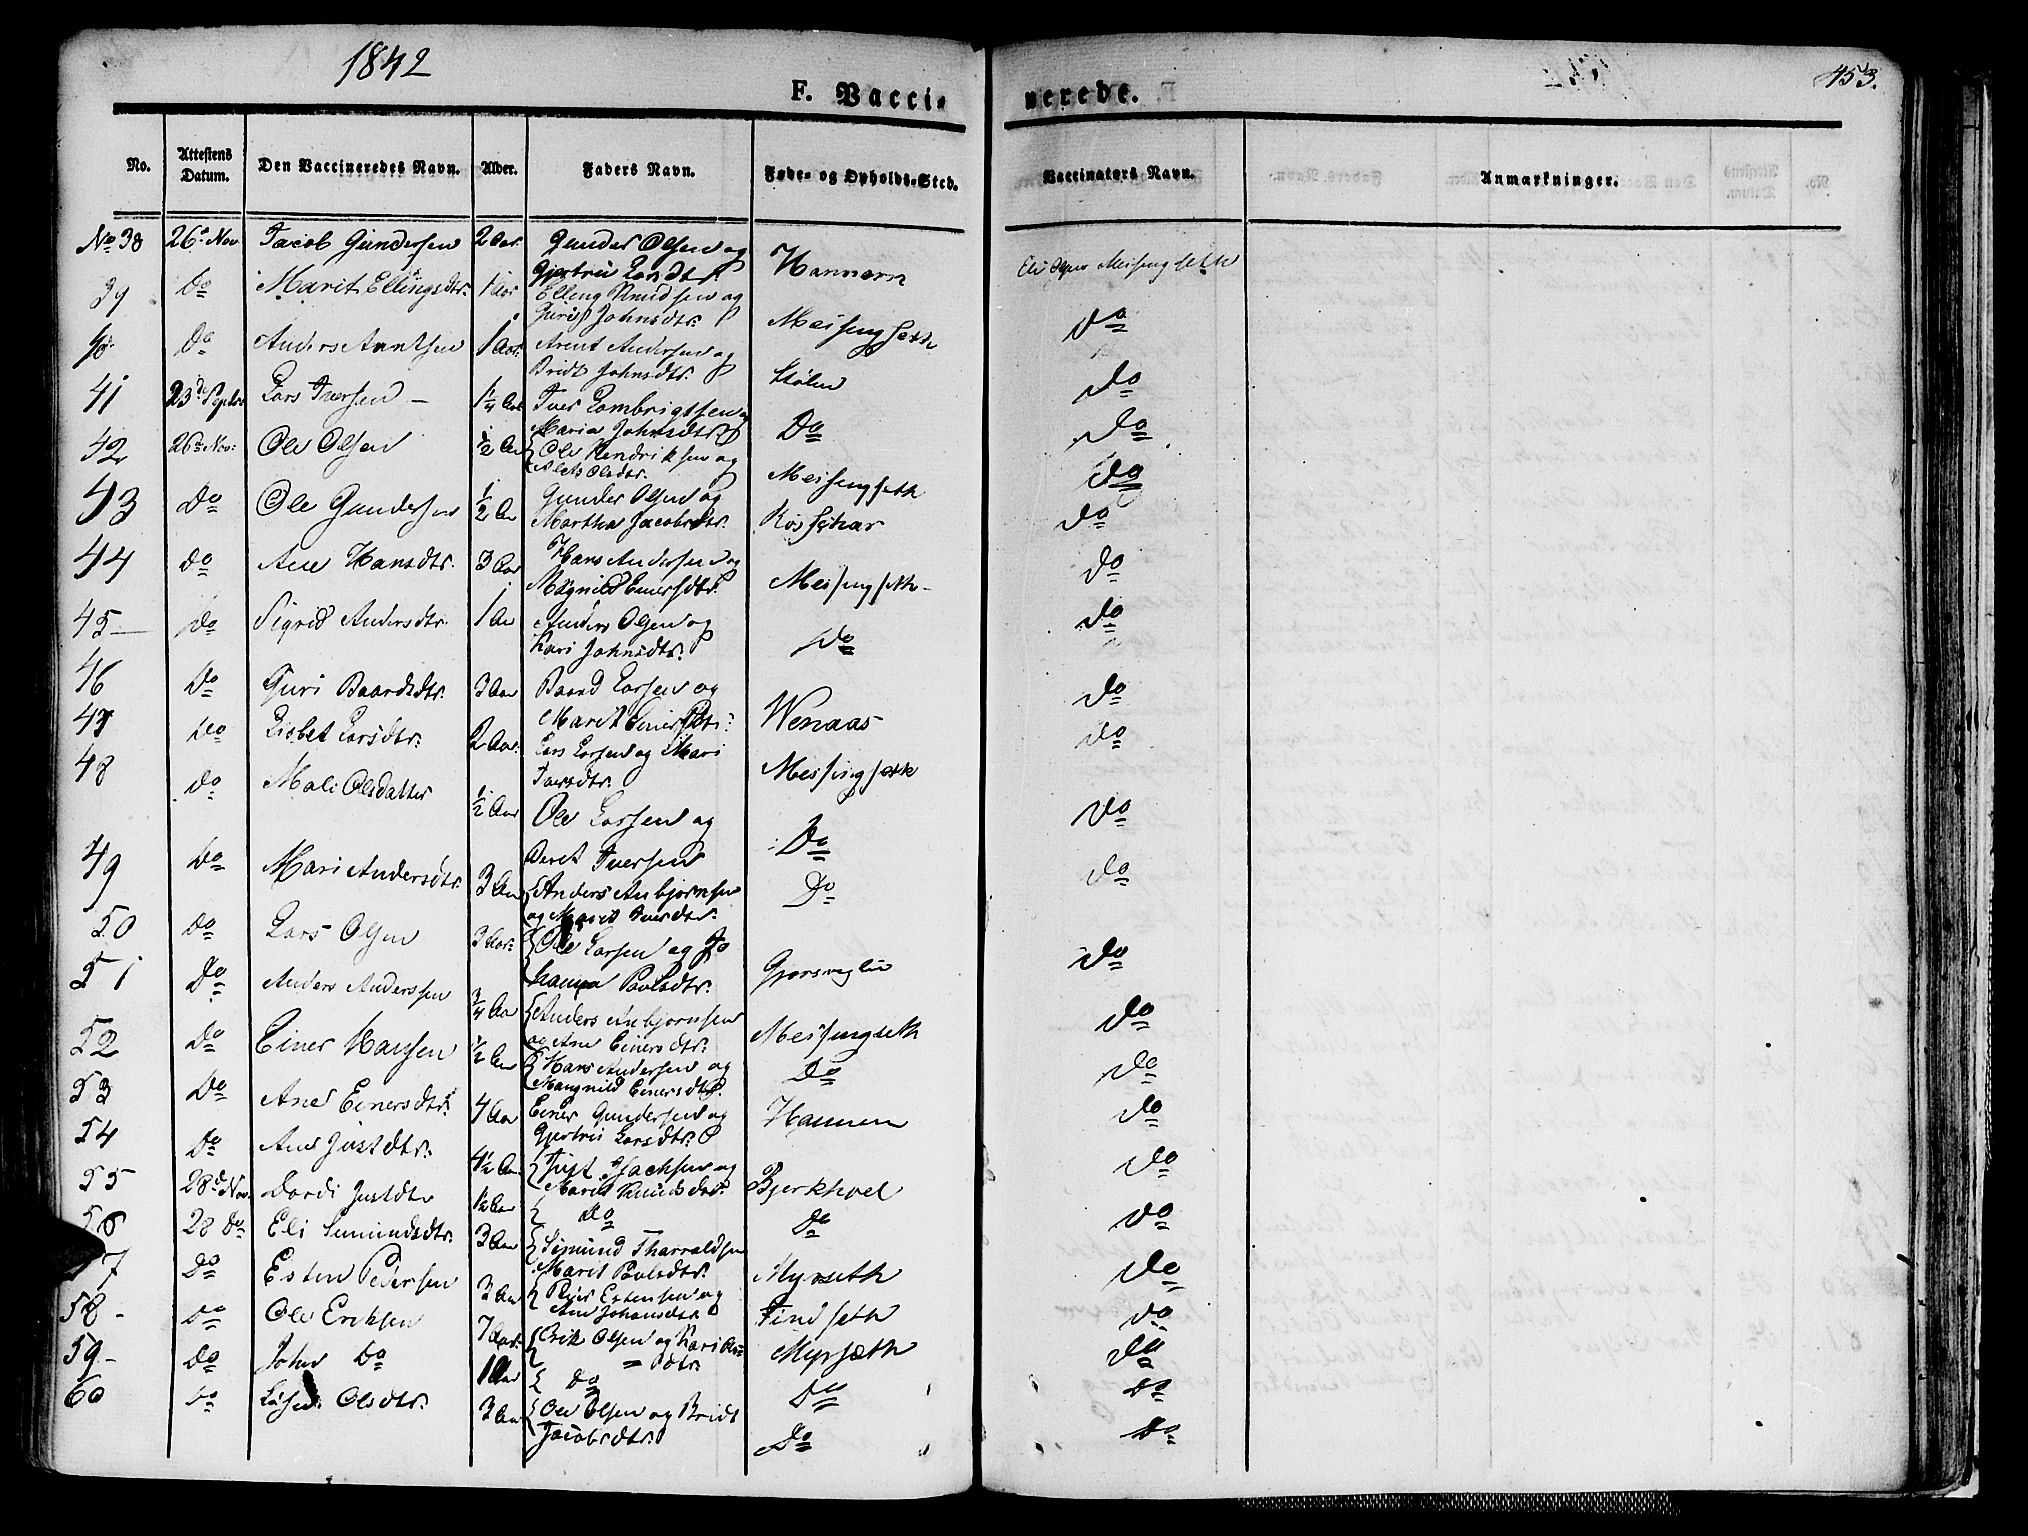 1842
453.
F. Vaccinerede.
No. Attestens Datum. Den Vaccineredes Navn. Alder. Faders Navn. Føde- og Opholds-Sted. Vaccinators Navn. Anmærkninger.
No 38 26de Nov Jacob Gundersen 2 Aar Gunder Olsen og
Gjertrui Larsdtr. Hannem Messingseth
39 Do Marit Ellingsdtr. 1 Aar Elling Knudsen og
Guri Johnsdtr. Meisingseth Do
40 Do Anders Arntsen 1 Aar Arent Andersen og
Bridt Johnsdtr. Stølen Do
41 23de Septbr Lars Iversen 1 1/4 Aar Iver Lambrigtsen og
Maria Johnsdtr. Do Do
42 26de Nov: Ole Olsen 1/2 Aar Ole Hendriksen og
Olsdtr. Meisingseth Do
43 Do Ole Gundersen 1/2 Aar Gunder Olsen og
Martha Jacobsdtr. Do
44 Do Ane Hansdtr. 3 Aar Hans Andersen og
Magnild Einersdtr. Meisingseth Do
45 Do Sigrid Andersdtr. 1 Aar Anders Olsen og
Kari Johnsdtr. Do Do
46 Do Guri Baardsdtr. 3 Aar Baard Larsen og
Marit Einersdtr. Wenaas Do
47 Do Lisbet Larsdtr. 2 Aar Lars Larsen og Mari
Iversdtr. Meisingseth Do
48 Do Mali Olsdatter 1/2 Aar Ole Larsen og
Beret Iversen Do Do
49 Do Mari Andersdtr. 3 Aar Anders Anbjørnsen
og Marit Iversdtr. Do Do
50 Do Lars Olsen 3 Aar Ole Larsen og Jo
hanna Povlsdtr. Do
51 Do Anders Anderssen 3/4 Aar Anders Anbjørnsen
og Ane Einersdtr. Meisingseth Do
52 Do Einer Hansen 1/2 Aar Hans Andersen og
Magnild Einersdtr. Do Do
53 Do Ane Einersdtr. 4 Aar Einer Gundersen og
Gjertrui Larsdtr. Hannem Do
54 Do Ane Justdtr. 4 1/2 Aar Just Isachsen og
Marit Knudsdtr. Bjerkhoel Do
55 28de Nov. Dordi Justdtr 1 1/2 Aar Do Do Do
56 28 Do Eli Simundsdtr. 3 Aar Simund Tharraldsen
Marit Povlsdtr. Myrseth Do
57 Do Esten Pedersen 3 Aar Peder Estensen og
Ane Johansdtr. Findseth Do
58 - Do Ole Eriksen 7 Aar Erik Olsen og Kari
dtr. Myrsæth Do
59 - Do John Do 1 Aar Do Do Do
60 Do Olsdtr. 3 Aar Ole Olsen og Bridt
Jacobsdtr. Do Do